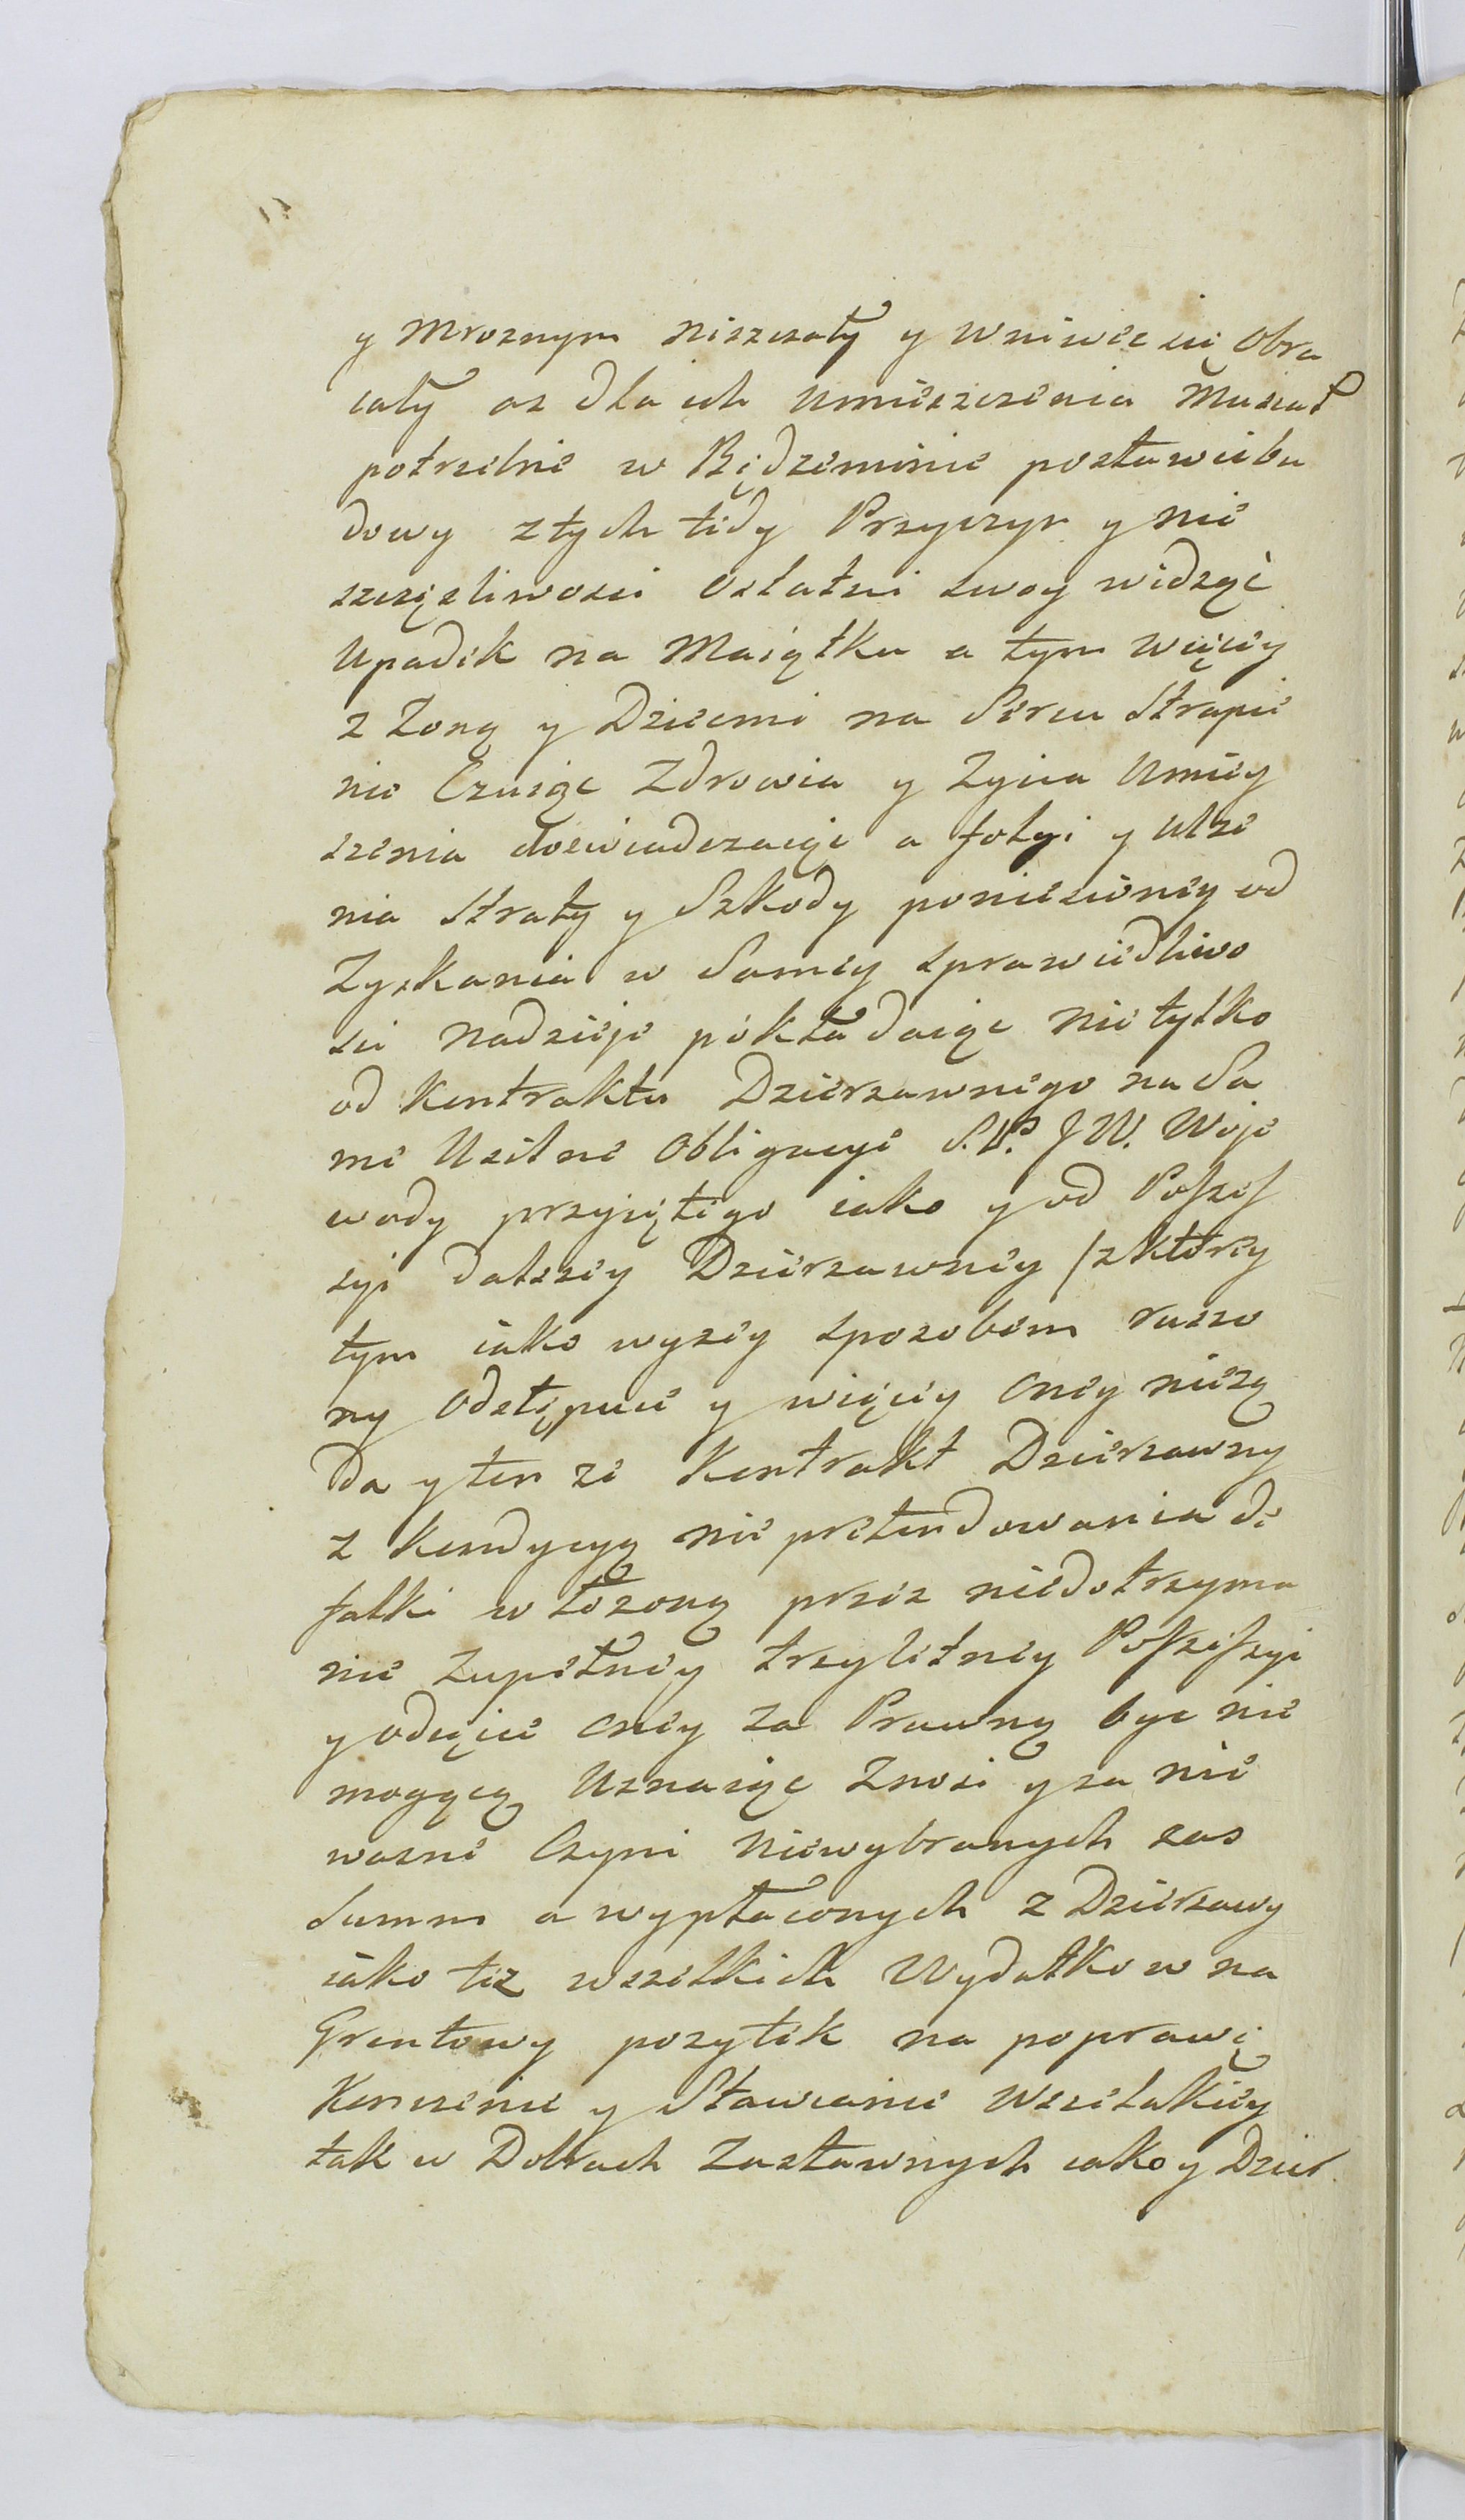 y Mroznym niszczały y wniwec się Obra
cały az dla ich umieszczenia Musiał
potrzebne w Będzeminie postawić bu
dowy z tych tedy Przyczyn y nie
szczęsliwosci Ostatni swoy widząc
Upadek na Maiątku a tym więcey
z Zoną y Dziecmi na Sercu Strapie
nie Czuiąc Zdrowia y Zycia Umiey
szenia doswiadczaiąc a folgi y ulże
nia Straty y Szkody poniesioney od
Zyskania w Samey sprawiedliwo
sci nadzieje pokładaiąc nie tylko
od Kontraktu Dzierzawnego na Sa
me Usilne Obligacye S.P. JW. Woje
wody przyjętego iako y od Possess
syi dalszey Dzierzawney /z ktorey
tym iako wyzey sposobem ruszo
ny Odstępuie y więcey oney nieżą
da y ten ze Kontrakt Dzierzawny
z Kondycyą nie pretendowania de
falki włożoną przez niedotrzyma
nie zupełney trzyletney Possessyi
y odięcie oney za Prawną byc nie
mogącą Uznaiąc Znosi y za nie
wazne Czyni niewybranych zas
Summ a wypłaconych z Dzierzawy
iako też wszelkich Wydatkow na
Grontowy pozytek na poprawę
Konczenie y Stawianie Wszelakiey
tak w Dobrach Zastawnych iako y Dzier